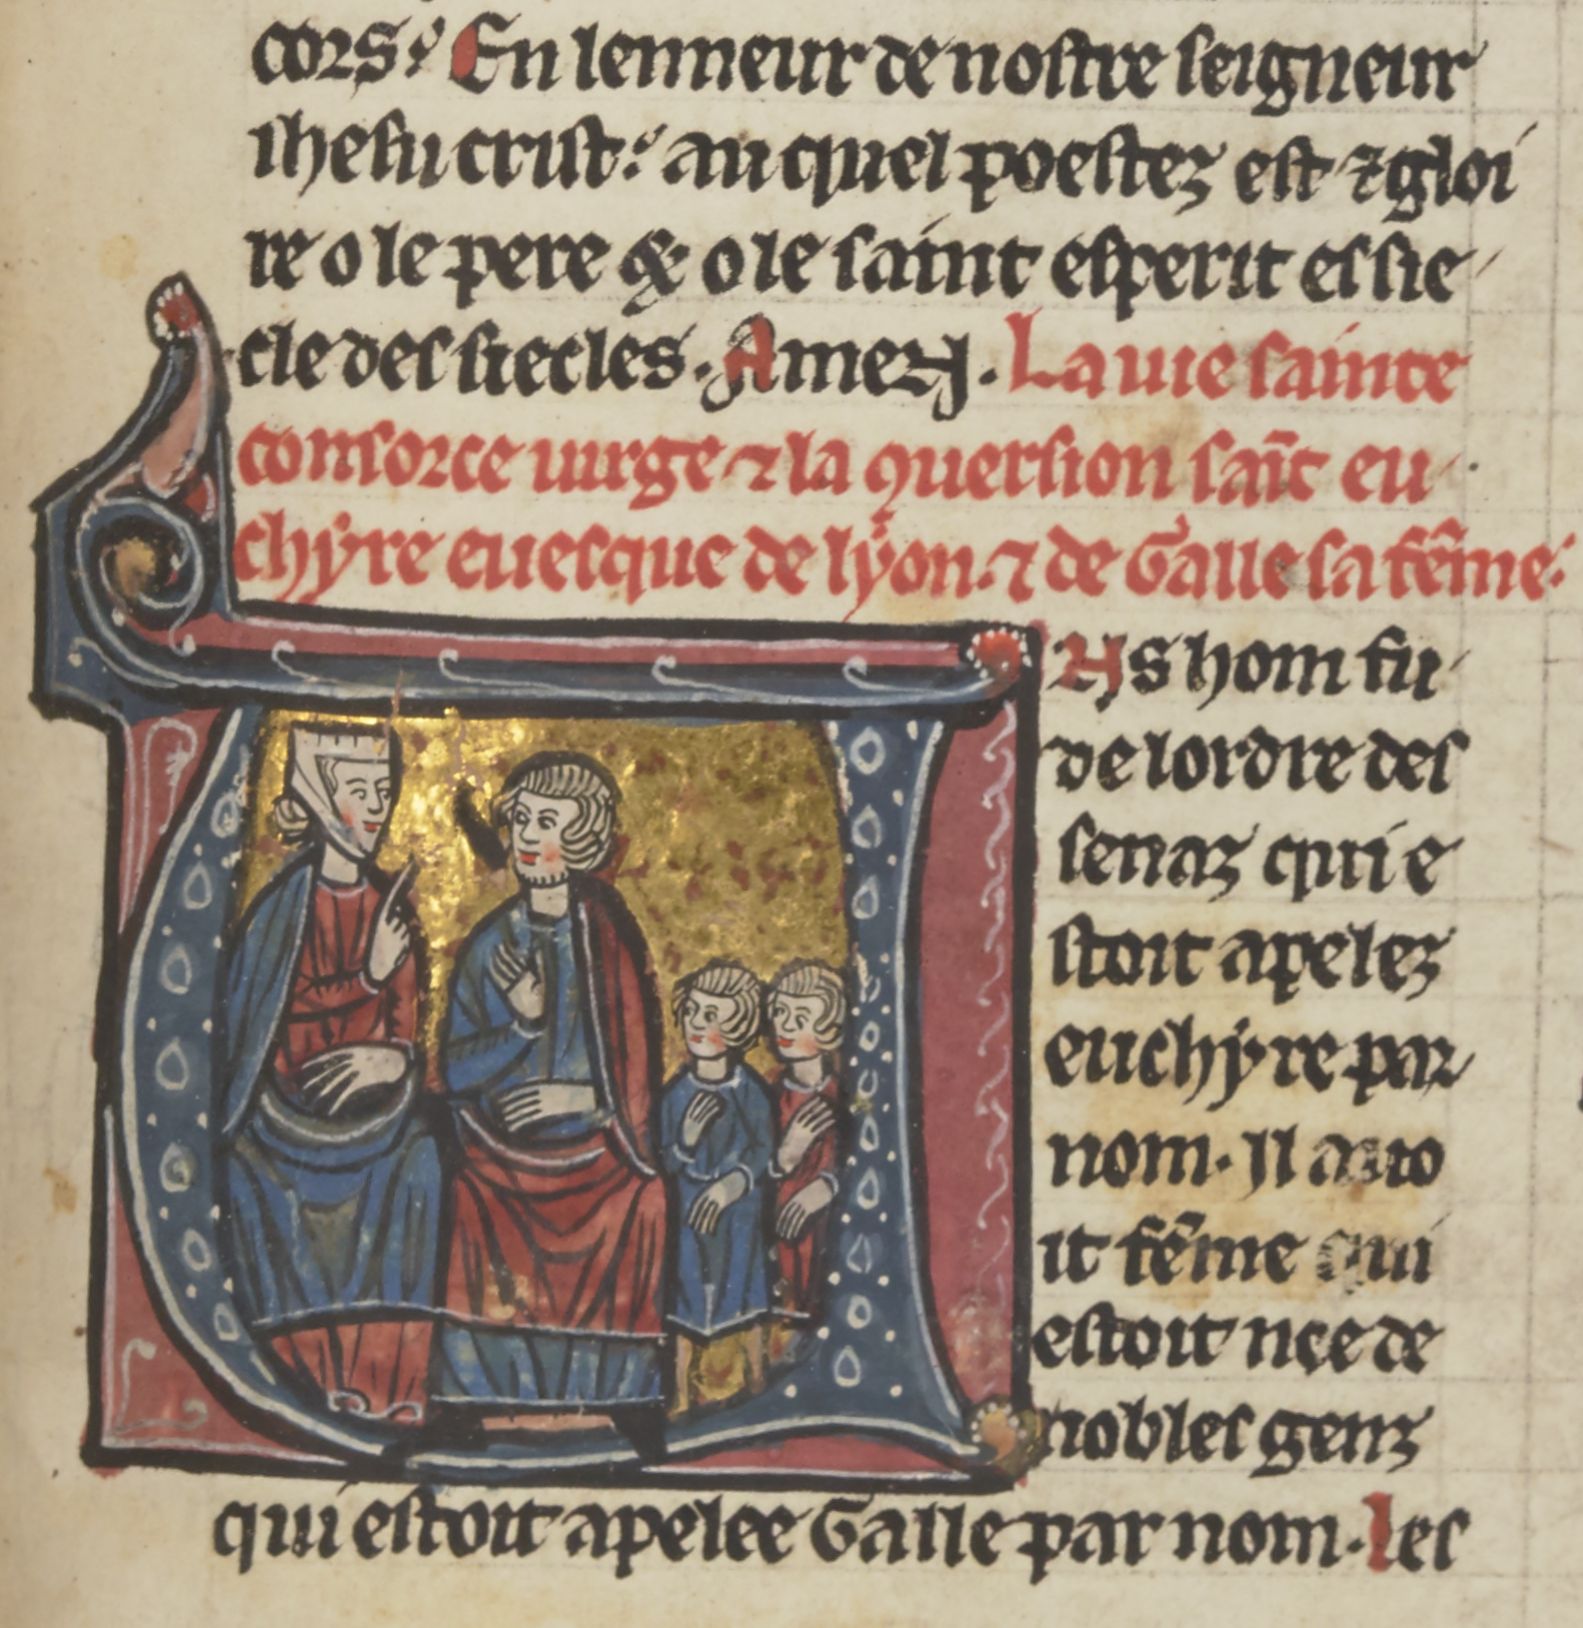 cors. En lenneur de nostre seigneur
ihesu crist. au quel poestez est ⁊ gloi
re o le pere & o le saint esperit es sie
cle des siecles. Amen. La uie sainte
consorce uirge ⁊ la ꝯuersion sait̃ eu
chyre euesque de lyon. ⁊ de Galle sa fẽme.
Uns hom fu
de lordre des
senaz qui e
stoit apelez
euchyre par
nom. Il auo
it fẽme qui
estoit nee de
nobles genz
qui estoit apelee Galle par nom. Les